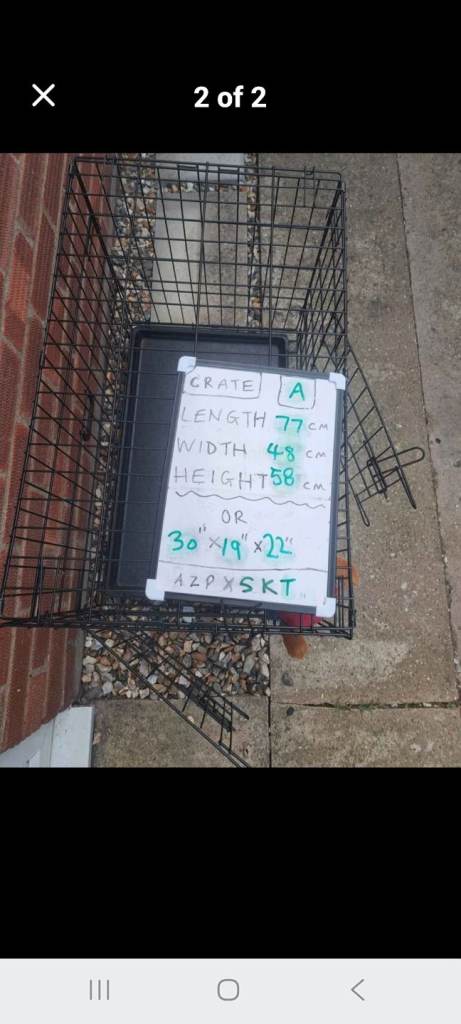 2 of 2
CRATE A
LENGTH 77 CM
WIDTH 48 CM
HEIGHT 58 CM
OR
30" x 19" x 22"
AZPXSKT